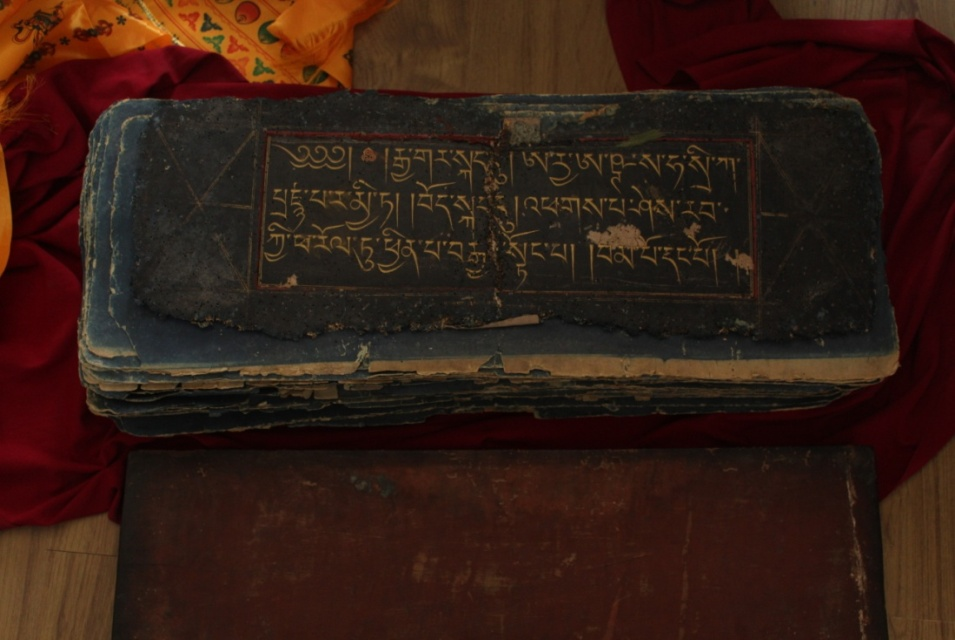 ༄༅༅། །རྒྱ་གར་སྐད་དུ། ཨ་རྱ་ཨཥྚ་ས་ཧ་སྲི་ཀཱ་
པྲཛྙཱ་པཱ་ར་མི་ཏཱ། །བོད་སྐད་དུ། འཕགས་པ་ཤེས་རབ་
ཀྱི་ཕ་རོལ་ཏུ་ཕྱིན་པ་བརྒྱད་སྟོང་པ། །བམ་པོ་དང་པོ།